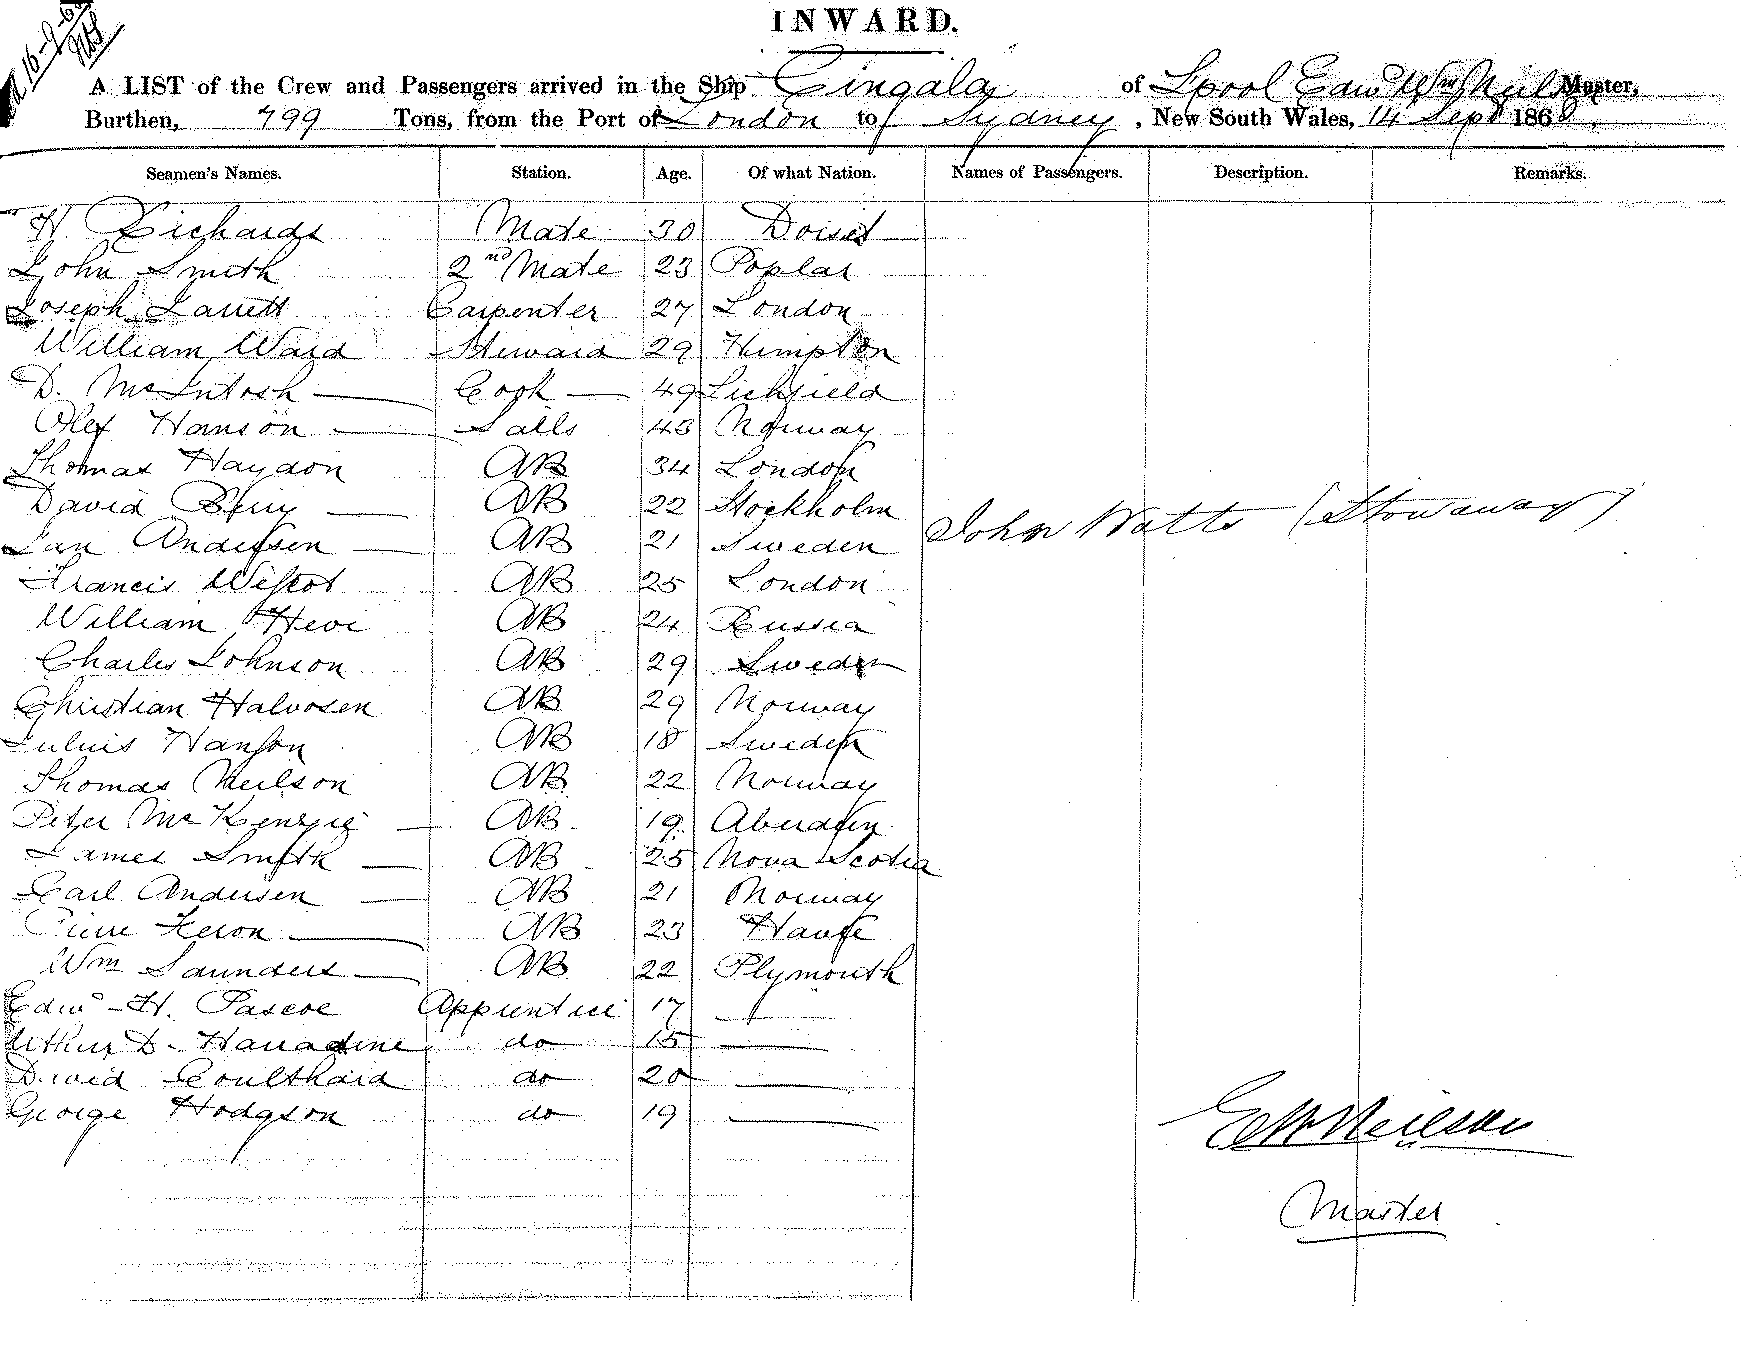 INWARD.
A LIST of the Crew and Passengers arrived in the Ship Cingalese of Lpool Edwd Wm Neilson Master,
Burthen, 799 Tons, from the Port of London to Sydney, New South Wales, 14 Sept 186
Seamen's Names. Station. Age. Of what Nation. Names of Passengers. Description. Remarks.
H. Richards Mate 30 Dorset
John Smith 2nd Mate 23 Poplar
Joseph Jarrett Carpenter 27 London
William Ward Steward 29 Hampton
D. McIntosh Cook 49 Lichfield
Olef Hanson Sails 43 Norway
Thomas Haydon AB 34 London
David Berry AB 22 Stockholm
Jan Andersen AB 21 Sweden John Watts (Stowaway)
Francis Wescot AB 25 London
William Hevi AB 24 Russia
Charles Johnson AB 29 Sweden
Christian Halvosen AB 29 Norway
Julius Hanson AB 18 Sweden
Thomas Neilson AB 22 Norway
Peter McKenzie AB 19 Aberdeen
James Smith AB 25 Nova Scotia
Carl Andersen AB 21 Norway
Pierre Feron AB 23 Havre
Wm Saunders AB 22 Plymouth
Edwd H. Pascoe Apprentice 17
Arthur D. Harradine do 15
David Coulthard do 20
George Hodgson do 19
EW Neilson
Master